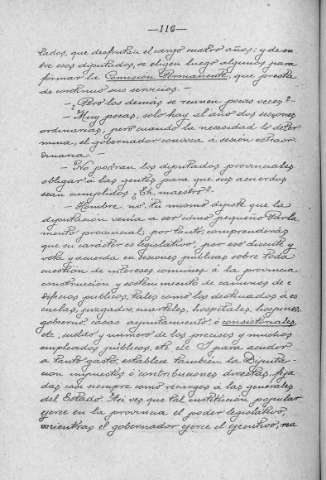 —116—
tados, que desfrutan el cargo cuatro años; y de en-
tre esos diputados, se eligen luego algunos para
formar la Comisión Permanente, que presta
de continuo sus servicios. —
— ¿Pero los demás se reunen pocas veces? —
— Muy pocas, solo hay al año dos sesiones
ordinarias, pero cuando la necesidad lo deter-
mina, el gobernador convoca a sesión extraor-
dinaria. —
— No podrían los diputados provinciales
obligar a las gentes para que sus acuerdos
sean cumplidos ¿Eh, maestro? —
— Hombre no: tu mismo dijiste que la
diputación venía a ser como pequeño Parla-
mento provincial; por tanto, comprenderás
que su carácter es legislativo, por eso discute y
vota y acuerda en sesiones públicas sobre toda
cuestión de intereses comunes a la provincia
construcción y sostenimiento de caminos, de e-
dificios públicos, tales como los destinados á es-
cuelas, juzgados, cuarteles, hospitales, hospicios,
gobierno, casas ayuntamiento ó consistoriales,
etc., sueldo y número de los precisos y muchos
empleados públicos, etc. etc. I para acudir
a tanto gasto, establece también la Diputa-
ción impuestos ó contribuciones directas, fija-
das casi siempre como recargos á las generales
del Estado. Así ves que tal institución popular
ejerce en la provincia el poder legislativo,
mientras el gobernador ejerce el ejecutivo, sea